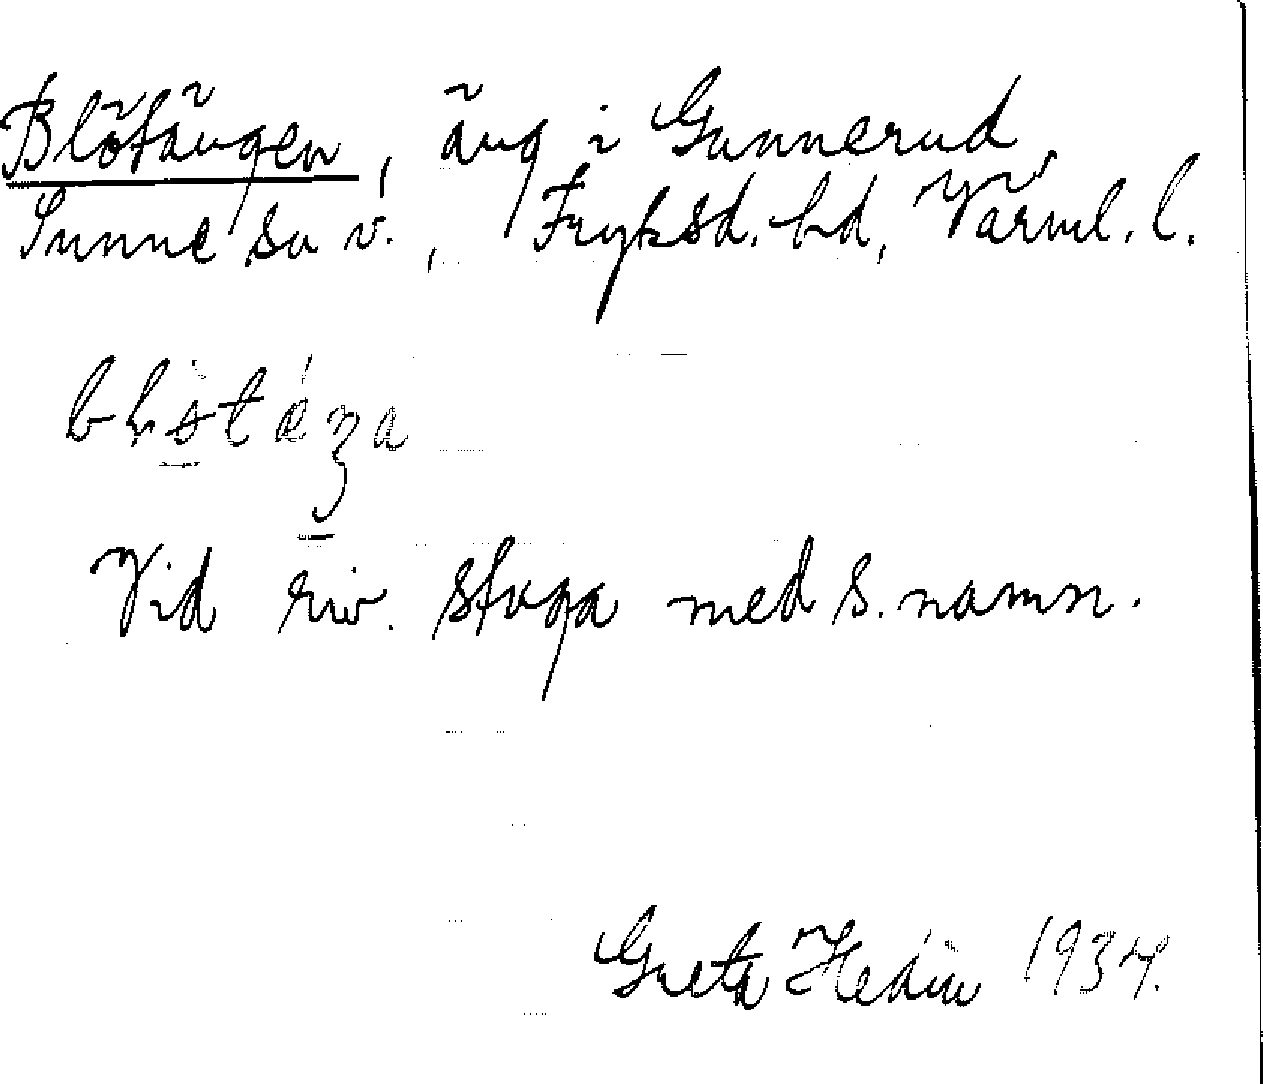 Blötängen, äng i Gunnerud,
Sunne sn v., Fryksd. hd, Värml. l.
Vid riv. stuga med s. namn.
Greta Hedin 1934.